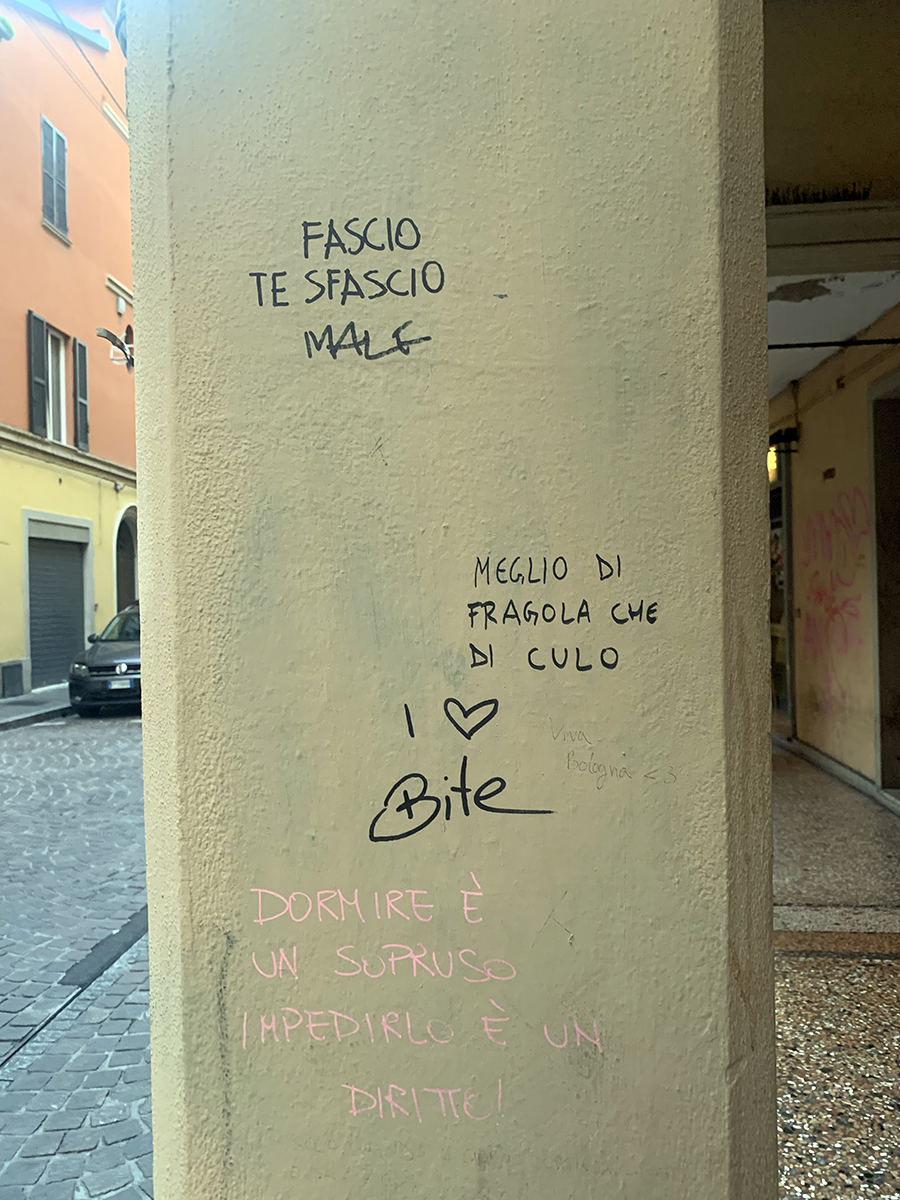 FASCIO
TE SFASCIO
MALE
MEGLIO DI
FRAGOLA CHE
DI CULO
I ♡
Bite
Viva
Bologna <3
DORMIRE È
UN SOPRUSO
IMPEDIRLO È UN
DIRITTO!